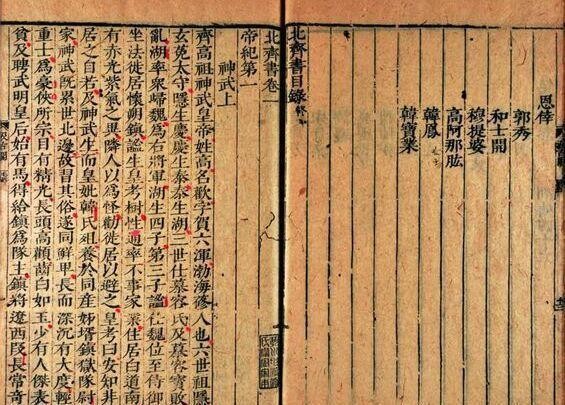 恩倖
郭秀
和士開
穆提婆
高阿那肱
韓鳳
韓寶業
北齊書目錄
北齊書卷一
帝紀第一
神武上
齊高祖神武皇帝姓高名歡字賀六渾渤海蓨人也六世祖隱
玄菟太守隱生慶慶生泰泰生湖三世仕慕容氏及慕容寶敗
亂湖率衆歸魏爲右將軍湖生四子第三子謐仕魏位至侍御
坐法徙居懷朔鎮謐生皇考樹性通率不事家業住居白道南
有赤光紫氣之異隣人以爲怪勸徙居以避之皇考曰安知非
居之自若及神武生而皇妣韓氏殂養於同產姊壻鎮獄隊尉
家神武旣累世北邊故習其俗遂同鮮卑長而深沉有大度輕
重士爲豪俠所宗目有精光長頭高顴齒白如玉少有人傑表
貧及聘武明皇后始有馬得給鎮爲隊主鎮將遼西段長常奇